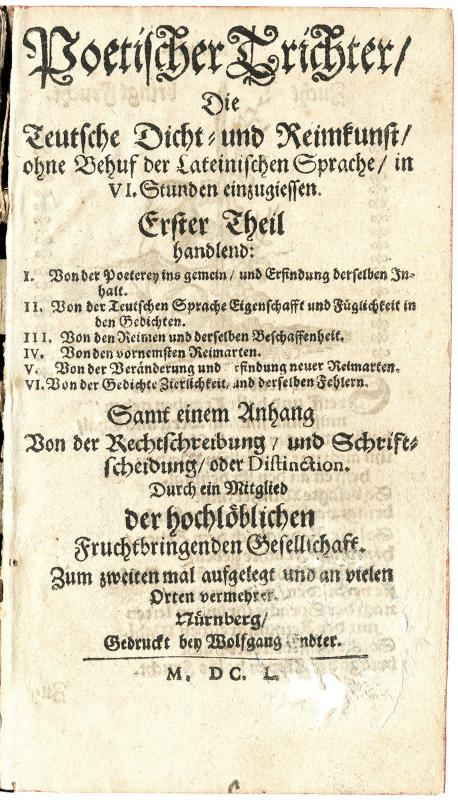 Poetischer Trichter/
Die
Teutsche Dicht- und Reimkunst/
ohne Behuf der Lateinischen Sprache/ in
VI. Stunden einzugiessen.
Erster Theil
handlend:
I. Von der Poeterey ins gemein/ und Erfindung derselben In-
halt.
II. Von der Teutschen Sprache Eigenschafft und Füglichkeit in
den Gedichten.
III. Von den Reimen und derselben Beschaffenheit.
IV. Von den vornemsten Reimarten.
V. Von der Veränderung und rfindung neuer Reimarten.
VI. Von der Gedichte Zierlichkeit, und derselben Fehlern.
Samt einem Anhang
Von der Rechtschreibung/ und Schrift-
scheidung/ oder Distinction.
Durch ein Mitglied
der hochlöblichen
Fruchtbringenden Gesellschaft.
Zum zweiten mal aufgelegt und an vielen
Orten vermehret.
Nürnberg/
Gedruckt bey Wolfgang ndter.
M. DC. L.